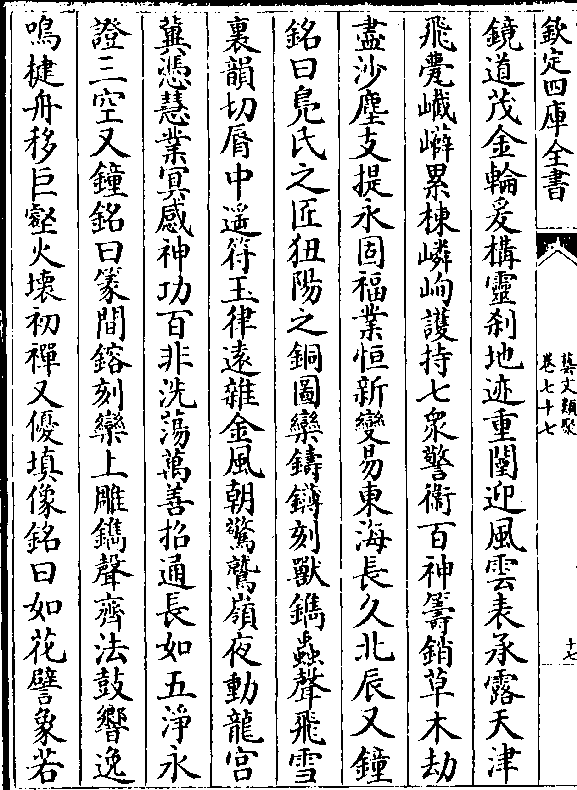 欽定四庫全書
藝文類聚
卷七十七
十七
鏡道茂金輪爰構靈刹地迹重闉迎風雲表承露天津
飛甍巘𡾋累棟嶙峋護持七衆警衛百神籌銷草木劫
盡沙塵支提永固福業恒新變易東海長久北辰又鐘
銘曰鳧氏之匠狃陽之銅圖欒鑄鏄刻獸鐫蟲聲飛雪
裏韻切脣中遥符玉律遠雜金風朝驚鷲嶺夜動龍宫
冀憑慧業冥感神功百非洗蕩萬善招通長如五淨永
證三空又鐘銘曰篆間鎔刻欒上雕鐫聲齊法鼓響逸
鳴楗舟移巨壑火壞初禪又優填像銘曰如花譬象若